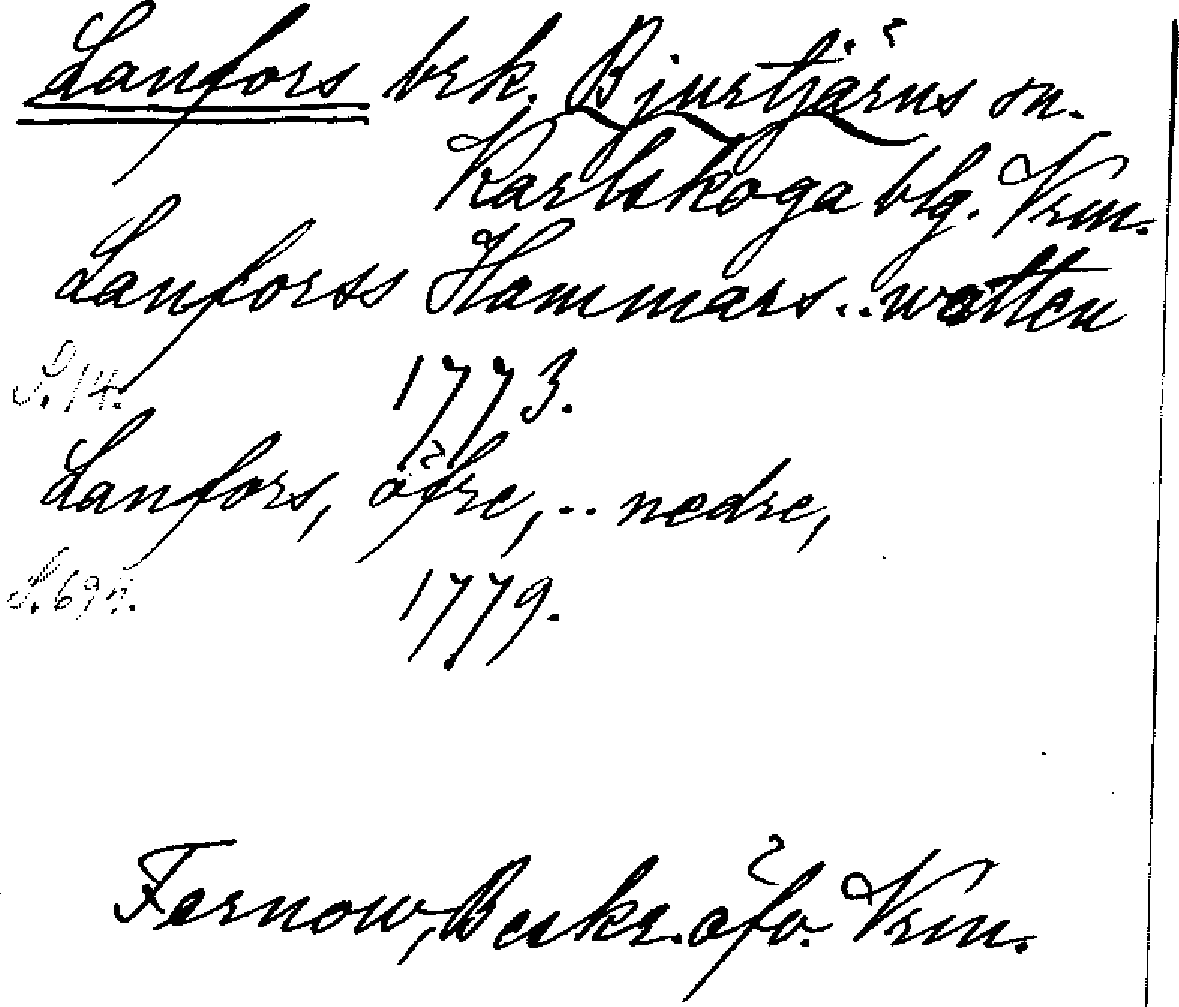 Lanfors brk. Bjurtjärns sn.
Karlskoga blg. Vrm.
Lanforss Hammars..watten
S. 14. 1773.
Lanfors, öfre,.. nedre,
S. 697. 1779.
Fernow, Beskr. öfv. Vrm.